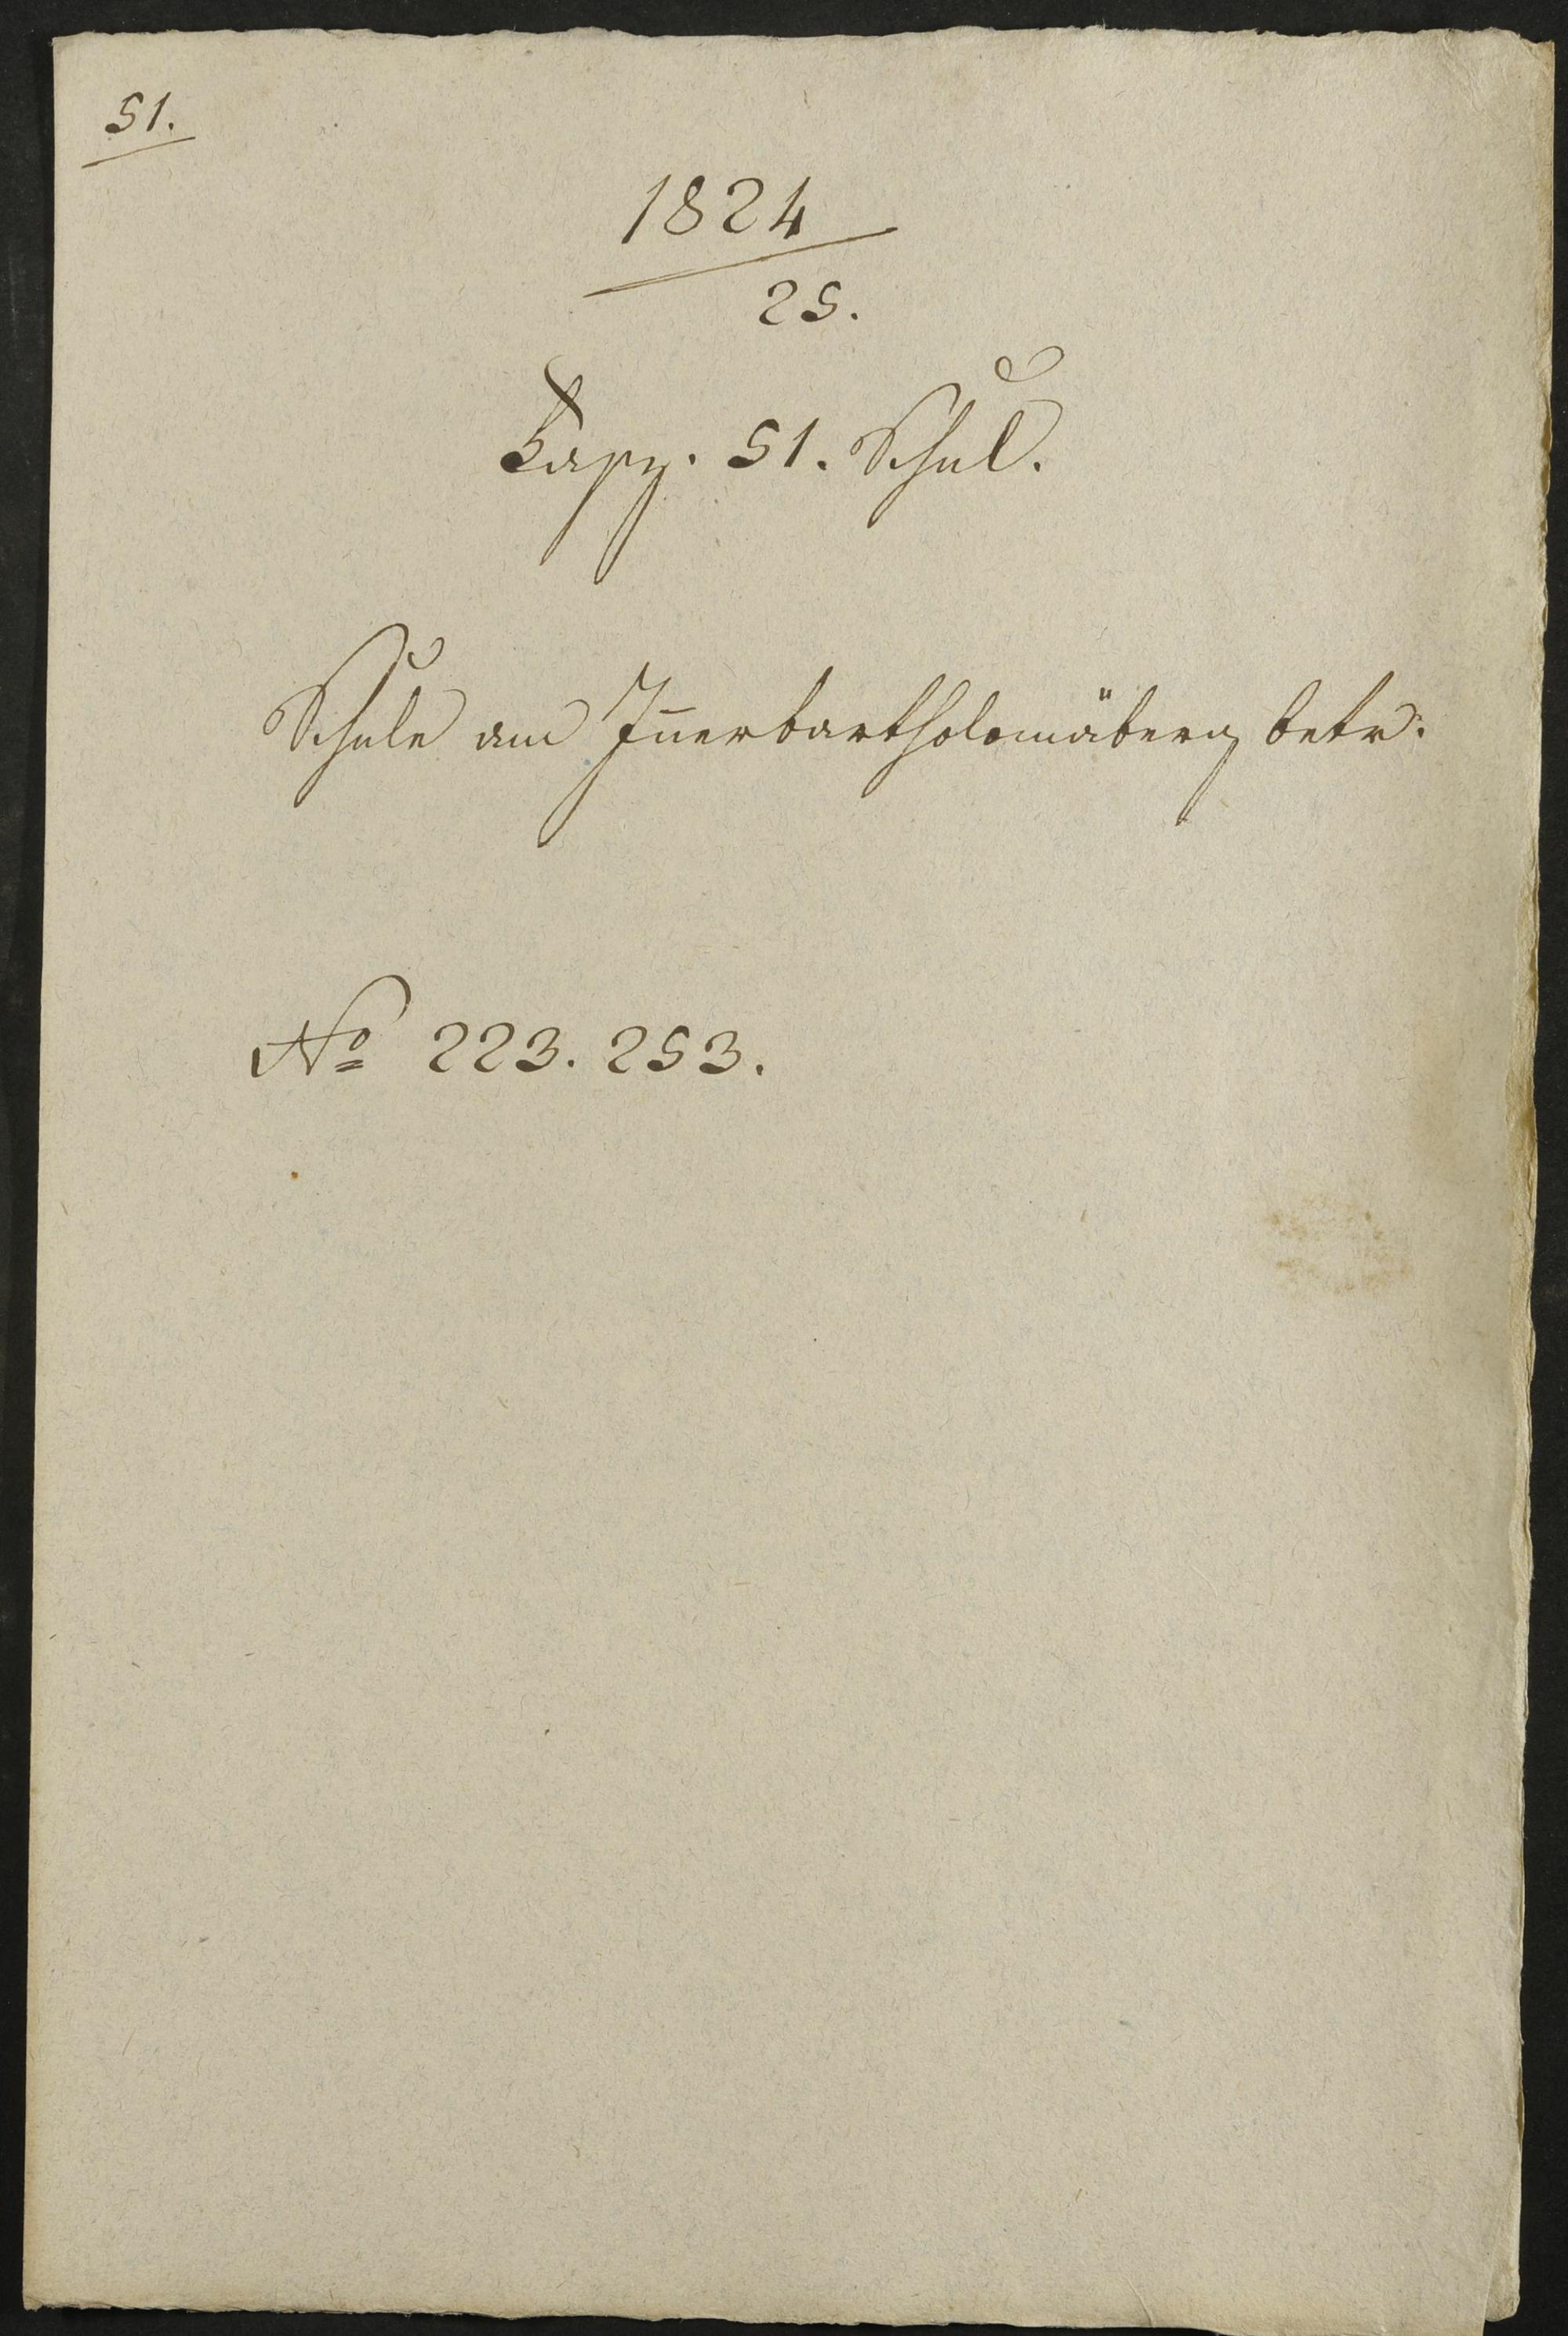 51.
1824
25.
Fasz. 51. Schul.
Schule am Innerbartholomäberg betr:
No 223. 253.